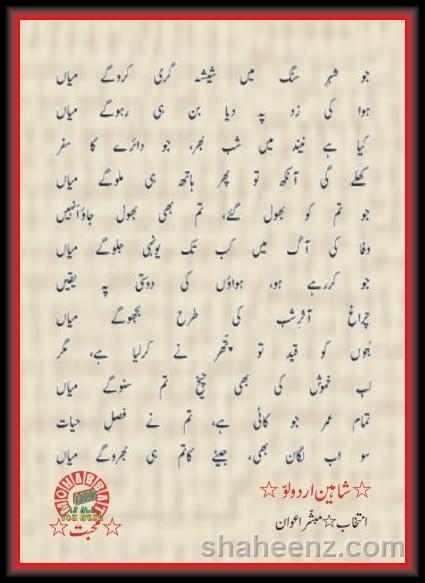 جو شہرِ سنگ میں شیشہ گری کروگے میاں
ہوا کی زد پہ دیا بن ہی رہوگے میاں
کیا ہے نیند میں شب بھر، جو دائرے کا سفر
کھلے گی آنکھ تو پھر ہاتھ ہی ملوگے میاں
جو تم کو بھول گئے، تم بھی بھول جاؤ اُنہیں
وفا کی آگ میں کب تک یونہی جلوگے میاں
جو کررہے ہو، ہواؤں کی دوستی پہ یقیں
چراغِ آخرِ شب کی طرح بجھوگے میاں
بتوں کو قید تو پتھر نے کرلیا ہے، مگر
لبِ خموش کی بھی چیخ تم سنوگے میاں
تمام عمر جو کاٹی ہے، تم نے فصلِ حیات
سو اب لگان بھی، جینے کا تم ہی بھروگے میاں
☆ شاہین اردو لوّ ☆
MOHABBAT
IS ALL
YOU NEED
☆ محبت ☆
انتخاب ☆ مبشّر اعوان
shaheenz.com